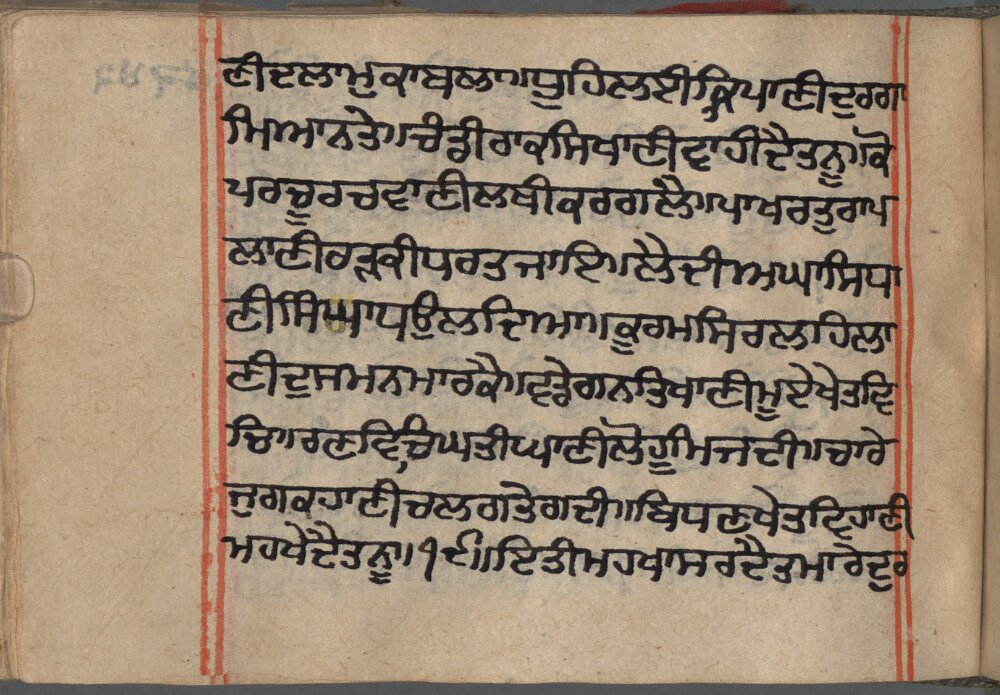 ਣੀਦਲਾਮੁਕਾਬਲਾ॥ਧੂਹਿਲਈਕ੍ਰਿਪਾਣੀਦੁਰਗਾ
ਮਿਆਨਤੇ॥ਚੰਡੀਰਾਕਸਿਖਾਣੀਵਾਹੀਦੈਤਨੂ॥ਕੋ
ਪਰਚੂਰਚਵਾਣੀਲਥੀਕਰਗਲੈ॥ਪਾਖਰਤੁਰਾਪ
ਲਾਣੀਰੜਕੀਧਰਤਜਾਇ॥ਲੈਦੀਅਘਾਸਿਧਾ
ਣੀਸਿੰਘਾਧਉਲਦਿਆ॥ਕੂਰਮਸਿਰਲਾਹਿਲਾ
ਣੀਦੁਸਮਨਮਾਰਕੈ॥ਵਢੇਗਨਤਿਖਾਣੀਮੂਏਖੇਤਵਿ
ਚਿ॥ਰਣਵਿਚਿਘਤੀਘਾਣੀਲੋਹੂਮਿਜਦੀ॥ਚਾਰੇ
ਜੁਗਕਹਾਣੀਚਲਗਤੇਗਦੀ॥ਬਿਧਣਖੇਤਵਿਹਾਣੀ
ਮਹਖੇਦੈਤਨੂ॥੧੯॥ਇਤੀਮਹਖਾਸਰਦੈਤਮਾਰੇਦੁਰ